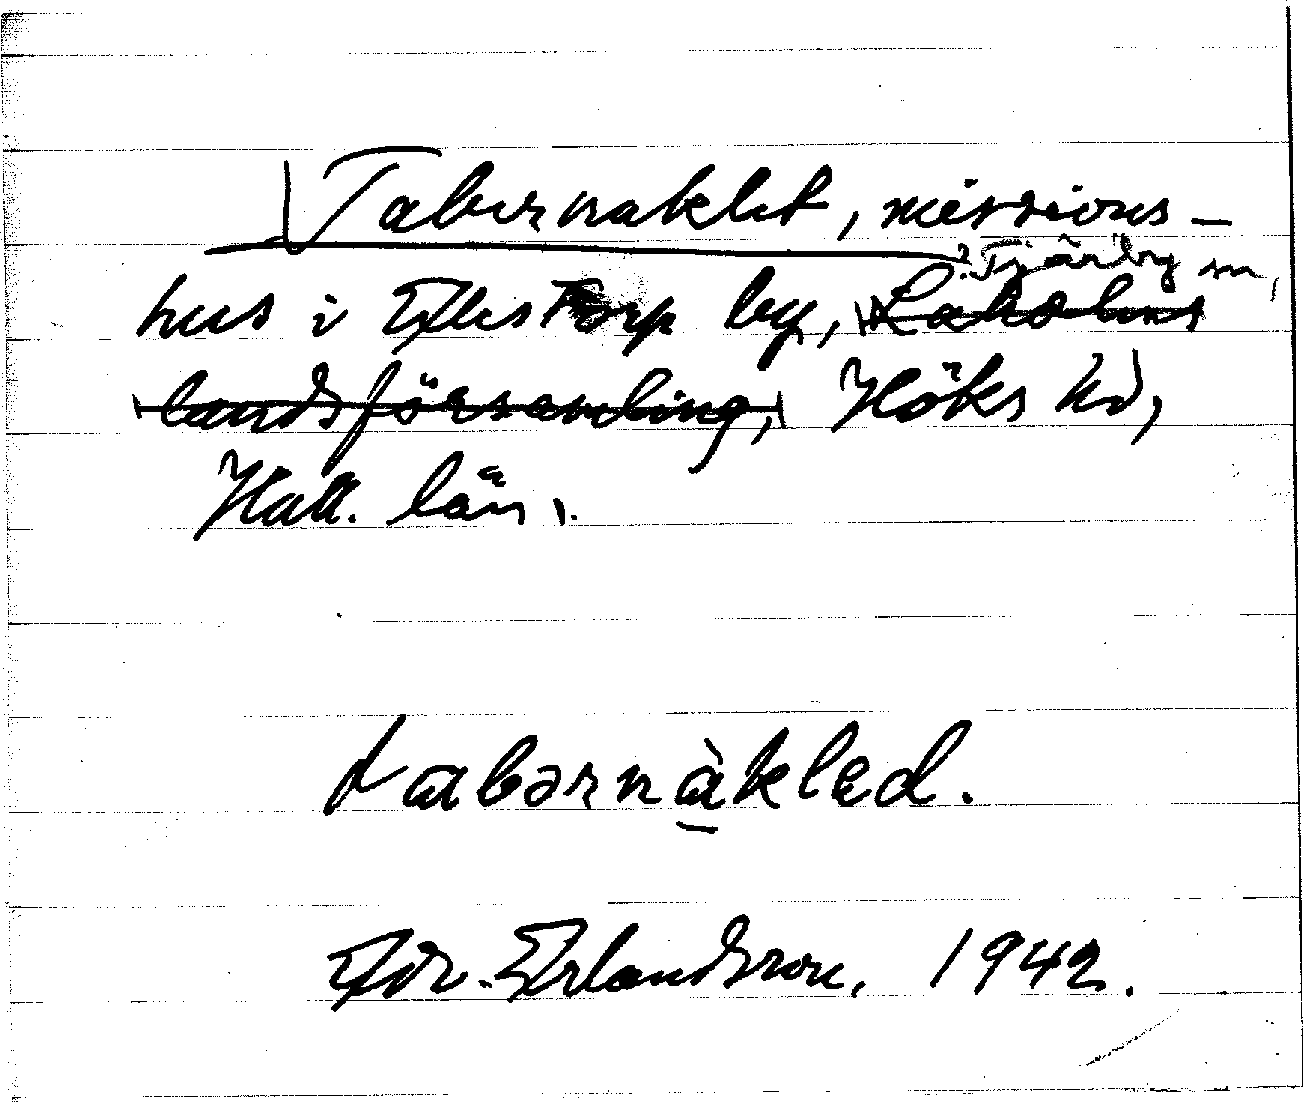 Tabernaklet, missions-
? Tjärby sn,
hus i Elestorp by, Laholms
landsförsamling, Höks hd,
Hall. län.
tabərnàkləd.
Edv. Erlandsson, 1942.